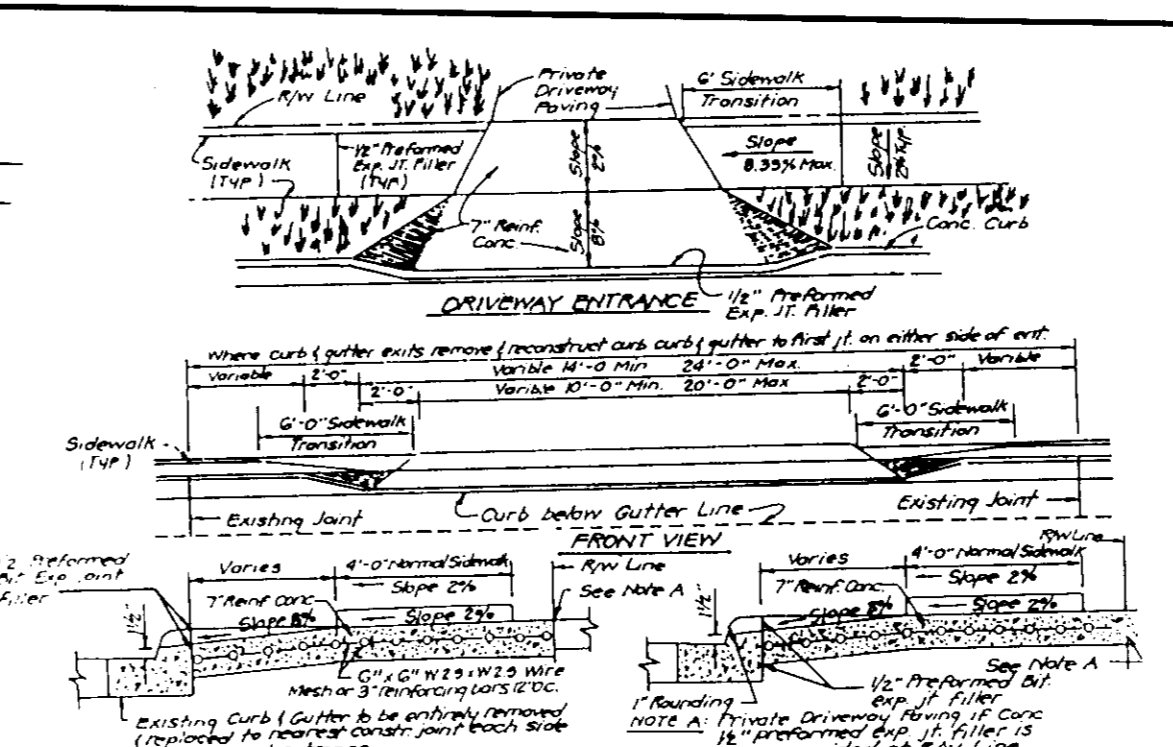 Private
Driveway
Paving
6' Sidewalk
Transition
R/W Line
Sidewalk
(Typ)
1/2" Preformed
Exp. JT. Filler
(Typ)
Slope
2%
Slope
8.33% Max.
Slope
2% Typ.
7" Reinf.
Conc.
Slope
8%
Conc. Curb
DRIVEWAY ENTRANCE
1/2" Preformed
Exp. JT. Filler
Where curb & gutter exits remove & reconstruct curb curb & gutter to first jt. on either side of ent.
Variable 2'-0" Varible 14'-0 Min 24'-0" Max. 2'-0" Variable
2'-0" Varible 10'-0" Min. 20'-0" Max 2'-0"
6'-0" Sidewalk
Transition
6'-0" Sidewalk
Transition
Sidewalk
(Typ)
Existing Joint
Curb below Gutter Line
Existing Joint
FRONT VIEW
1/2 Preformed
Bit Exp Joint
Filler
Varies
4'-0" Normal Sidewalk
Slope 2%
R/W Line
See Note A
7" Reinf Conc
Slope 8%
Slope 2%
1 1/2"
6" x 6" W2.9 x W2.9 Wire
Mesh or 3" reinforcing bars 12" OC.
Existing Curb & Gutter to be entirely removed
& replaced to nearest constr. joint each side
Varies
4'-0" Normal Sidewalk
R/W Line
Slope 2%
7" Reinf. Conc
Slope 8%
Slope 2%
1 1/2"
See Note A
1/2" Preformed Bit.
exp. jt. filler
1" Rounding
NOTE A: Private Driveway Paving if Conc
1/2" preformed exp. jt. filler is
at R/W Line